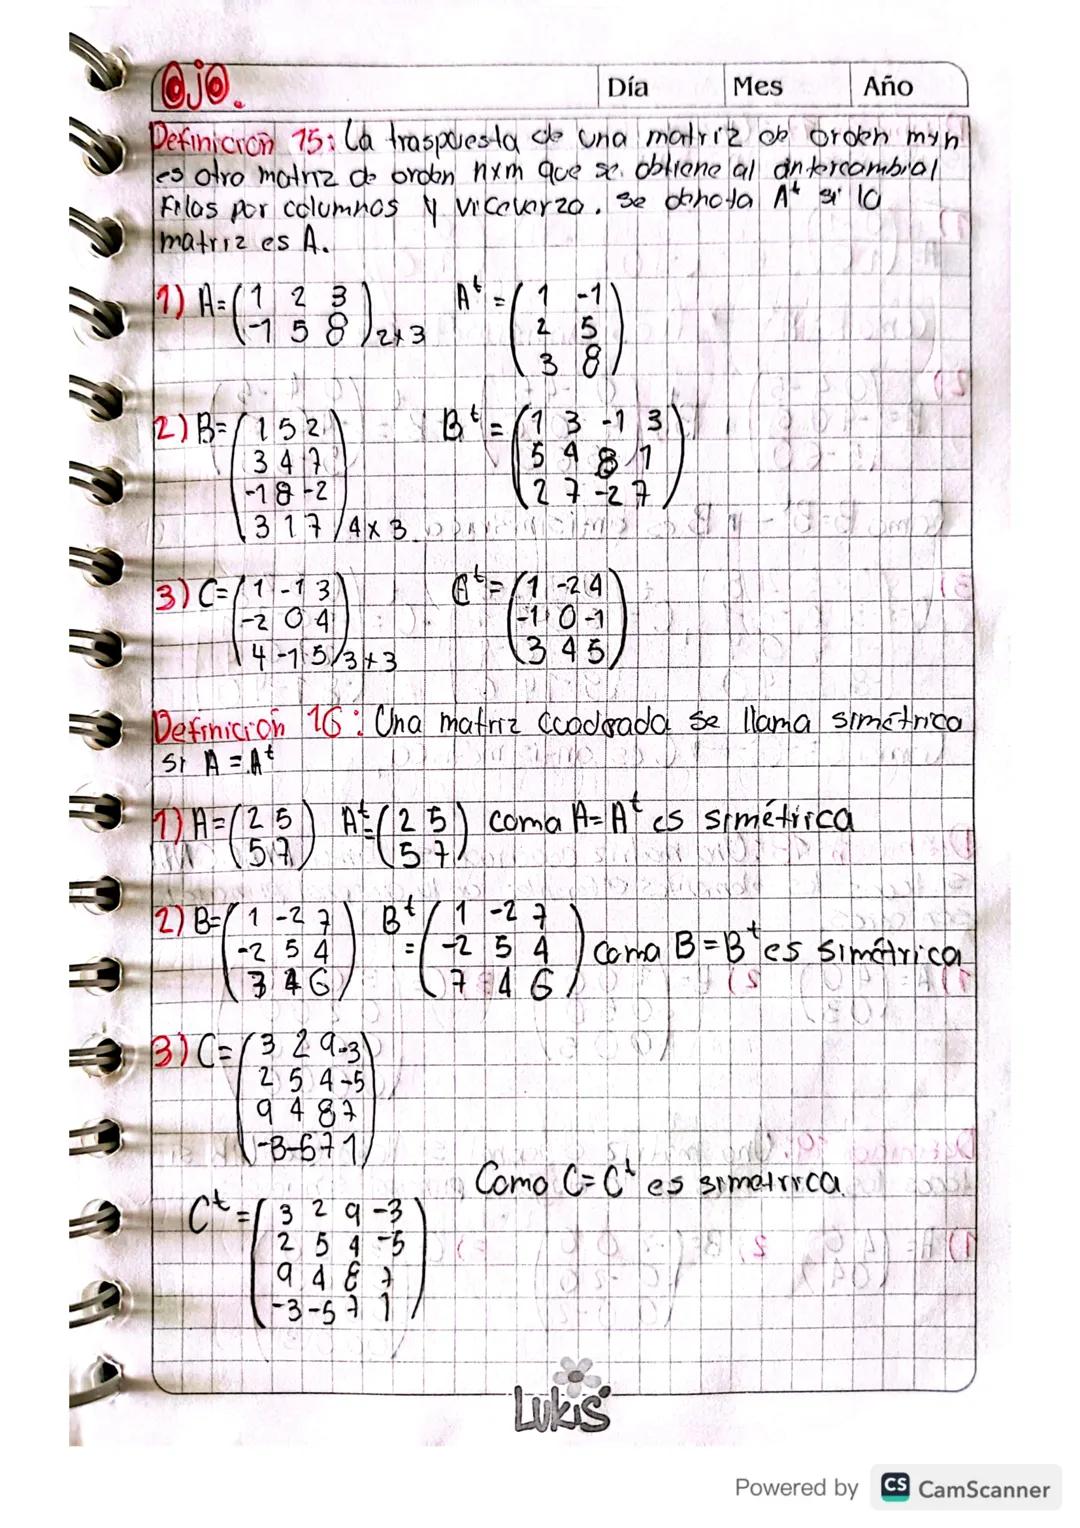 Ojo.
Día Mes Año
Definición 15: La traspuesta de una matriz de orden mxn
es otro matriz de orden nxm que se obtiene al intercambial
Filas por columnas y viceverza. Se denota A^t si la
matriz es A.
1) A=(1 2 3 A^t = (1 -1
-1 5 8)2x3 2 5
3 8)
2) B=(1 5 2 B^t = (1 3 -1 3
3 4 7 5 4 8 1
-1 8 -2 2 7 -2 7)
3 1 7)4x3
3) C=(1 -1 3 C^t = (1 -2 4
-2 0 4 -1 0 -1
4 -1 5)3x3 3 4 5)
Definición 16: Una matriz cuadrada se llama simétrica
si A = A^t
1) A=(2 5 A^t=(2 5 como A=A^t es simétrica
5 7) 5 7)
2) B=(1 -2 7 B^t = (1 -2 7
-2 5 4 -2 5 4 Como B=B^t es simétrica
3 4 6) 7 4 6)
3) C=(3 2 9 -3
2 5 4 -5
9 4 8 7
-3 -5 7 1)
Como C=C^t es simetrica
C^t=(3 2 9 -3
2 5 4 -5
9 4 8 7
-3 -5 7 1)
Lukis
Powered by CS CamScanner